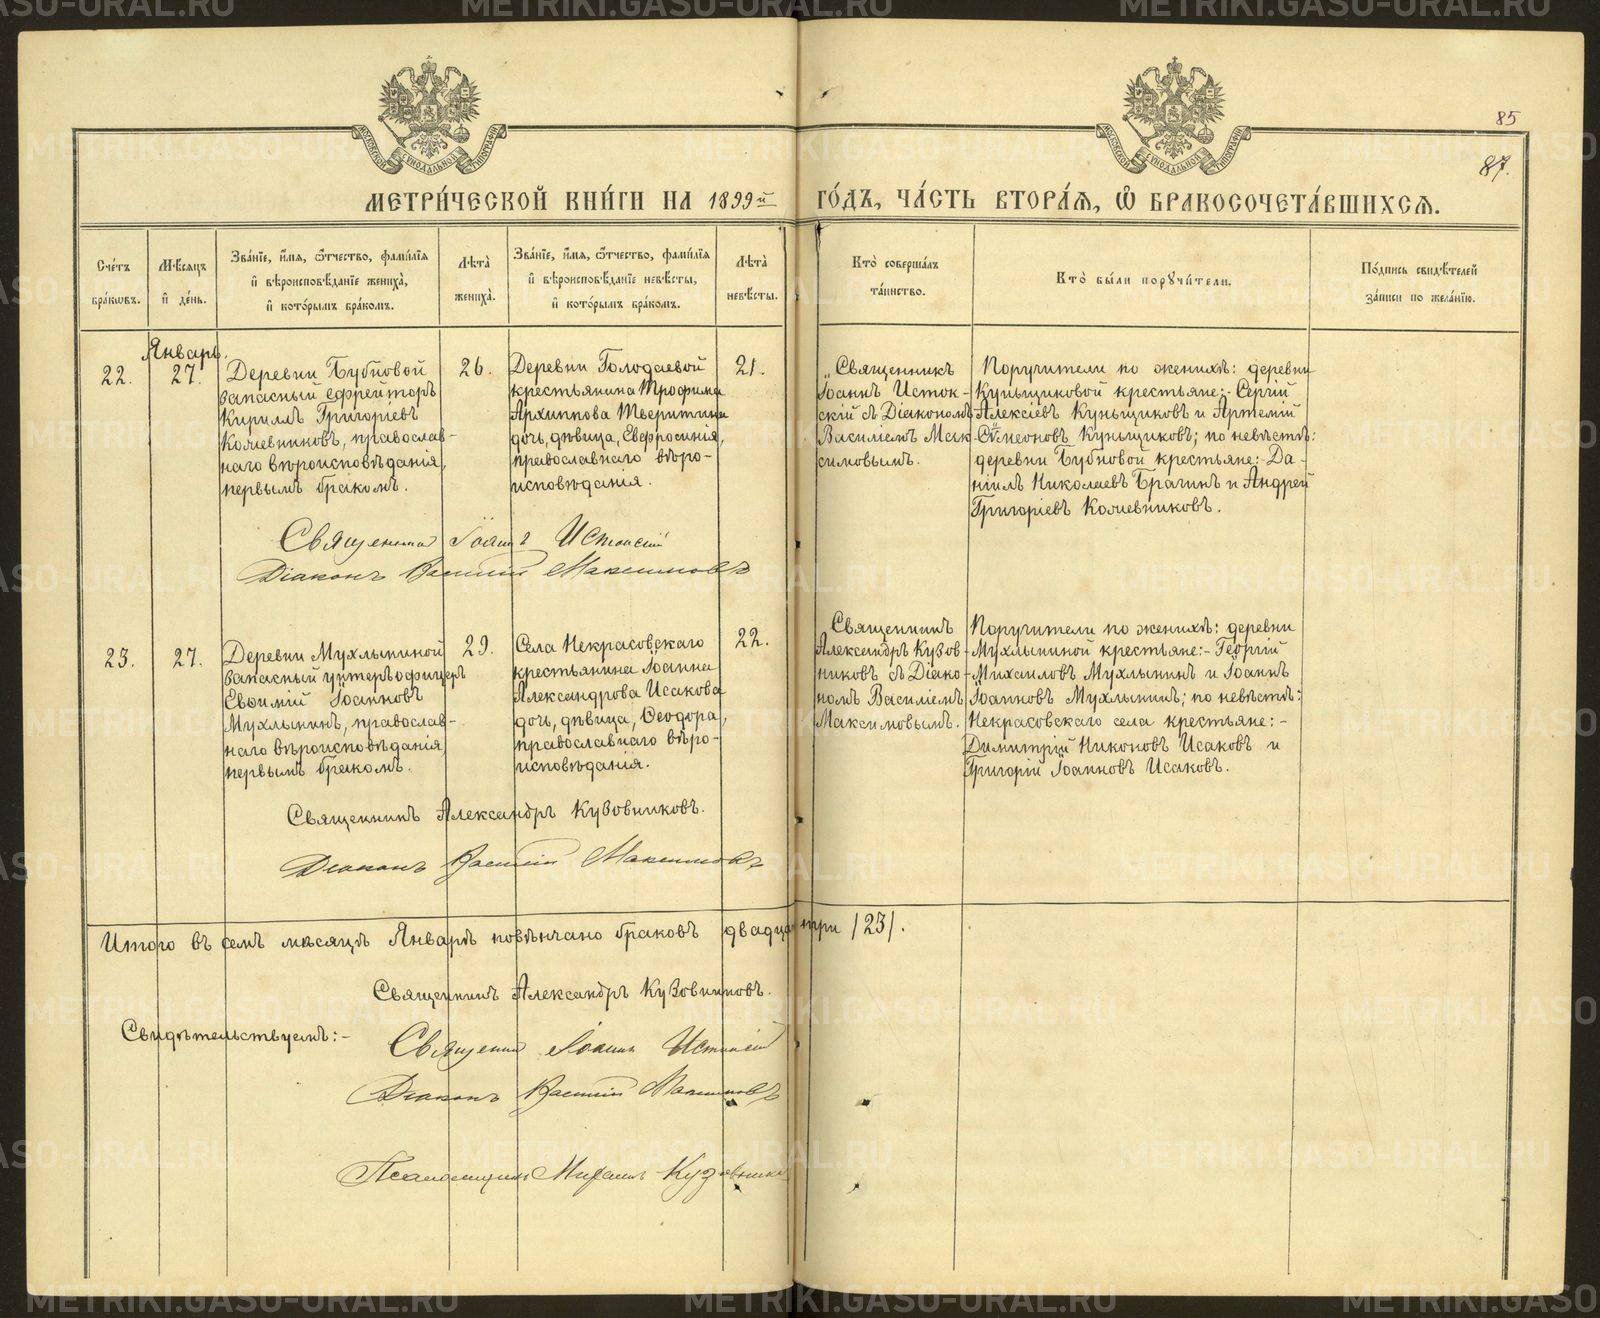 METRIKI.GASO-URAL.RU
85
87.
МОСКОВСКОЙ СѴНОДАЛЬНОЙ ТИПОГРАФІИ
МОСКОВСКОЙ СѴНОДАЛЬНОЙ ТИПОГРАФІИ
МЕТРИ́ЧЕСКОЙ КНИ́ГИ НА 1899й ГО́ДЪ, ЧА́СТЬ ВТОРА́Ѧ, Ѽ БРАКОСОЧЕТА́ВШИХСѦ.
Сче́тъ бра́кωвъ.
Мѣ́сѧцъ и҆ де́нь.
Зва́нїе, и҆́мѧ, ѻ҆́тчество, фами́лїѧ и҆ вѣроисповѣ́данїе жениха̀, и҆ кото́рымъ бра́комъ.
Лѣ́та жениха̀.
Зва́нїе, и҆́мѧ, ѻ҆́тчество, фами́лїѧ и҆ вѣроисповѣ́данїе невѣ́сты, и҆ кото́рымъ бра́комъ.
Лѣ́та невѣ́сты.
Кто̀ соверша́лъ та́инство.
Кто̀ бы́ли порꙋчи́тели.
По́дпись свидѣ́телей за́писи по жела́нїю.
Январь.
22.
27.
Деревни Бубновой
запасный ефрейторъ
Кириллъ Григоріевъ
Кожевниковъ, православ-
наго вѣроисповѣданія,
первымъ бракомъ.
26.
Деревни Голодаевой
крестьянина Трофима
Архиппова Тверитина
дочь, дѣвица, Евфросинія,
православнаго вѣро-
исповѣданія.
21.
Священникъ
Іоаннъ Исток-
скій съ Діакономъ
Василіемъ Мак-
симовымъ.
Поручители по женихѣ: деревни
Куньщиковой крестьяне:- Сергій
Алексіевъ Куньщиковъ и Артемій
Сѷмеоновъ Куньщиковъ; по невѣстѣ:
деревни Бубновой крестьяне:- Да-
ніилъ Николаевъ Брагинъ и Андрей
Григоріевъ Кожевниковъ.
Священникъ Іоаннъ Истокскій
Діаконъ Василій Максимовъ
23.
27.
Деревни Мухлыниной
запасный унтеръ офицеръ
Евѳимій Іоанновъ
Мухлынинъ, православ-
наго вѣроисповѣданія,
первымъ бракомъ.
29.
Села Некрасовскаго
крестьянина Іоанна
Александрова Исакова
дочь, дѣвица, Ѳеодора,
православнаго вѣро-
исповѣданія.
22.
Священникъ
Александръ Кузов-
никовъ съ Діако-
номъ Василіемъ
Максимовымъ.
Поручители по женихѣ: деревни
Мухлыниной крестьяне:- Георгій
Михаиловъ Мухлынинъ и Іоаннъ
Іоанновъ Мухлынинъ; по невѣстѣ:
Некрасовскаго села крестьяне:-
Димитрій Никоновъ Исаковъ и
Григорій Іоанновъ Исаковъ.
Священникъ Александръ Кузовниковъ.
Діаконъ Василій Максимовъ
Итого въ семъ мѣсяцѣ Январѣ повѣнчано браковъ двадцать три /23/.
Священникъ Александръ Кузовниковъ.
Свидѣтельствуемъ:-
Священникъ Іоаннъ Истокскій
Діаконъ Василій Максимовъ
Псаломщикъ Михаилъ Кузовников